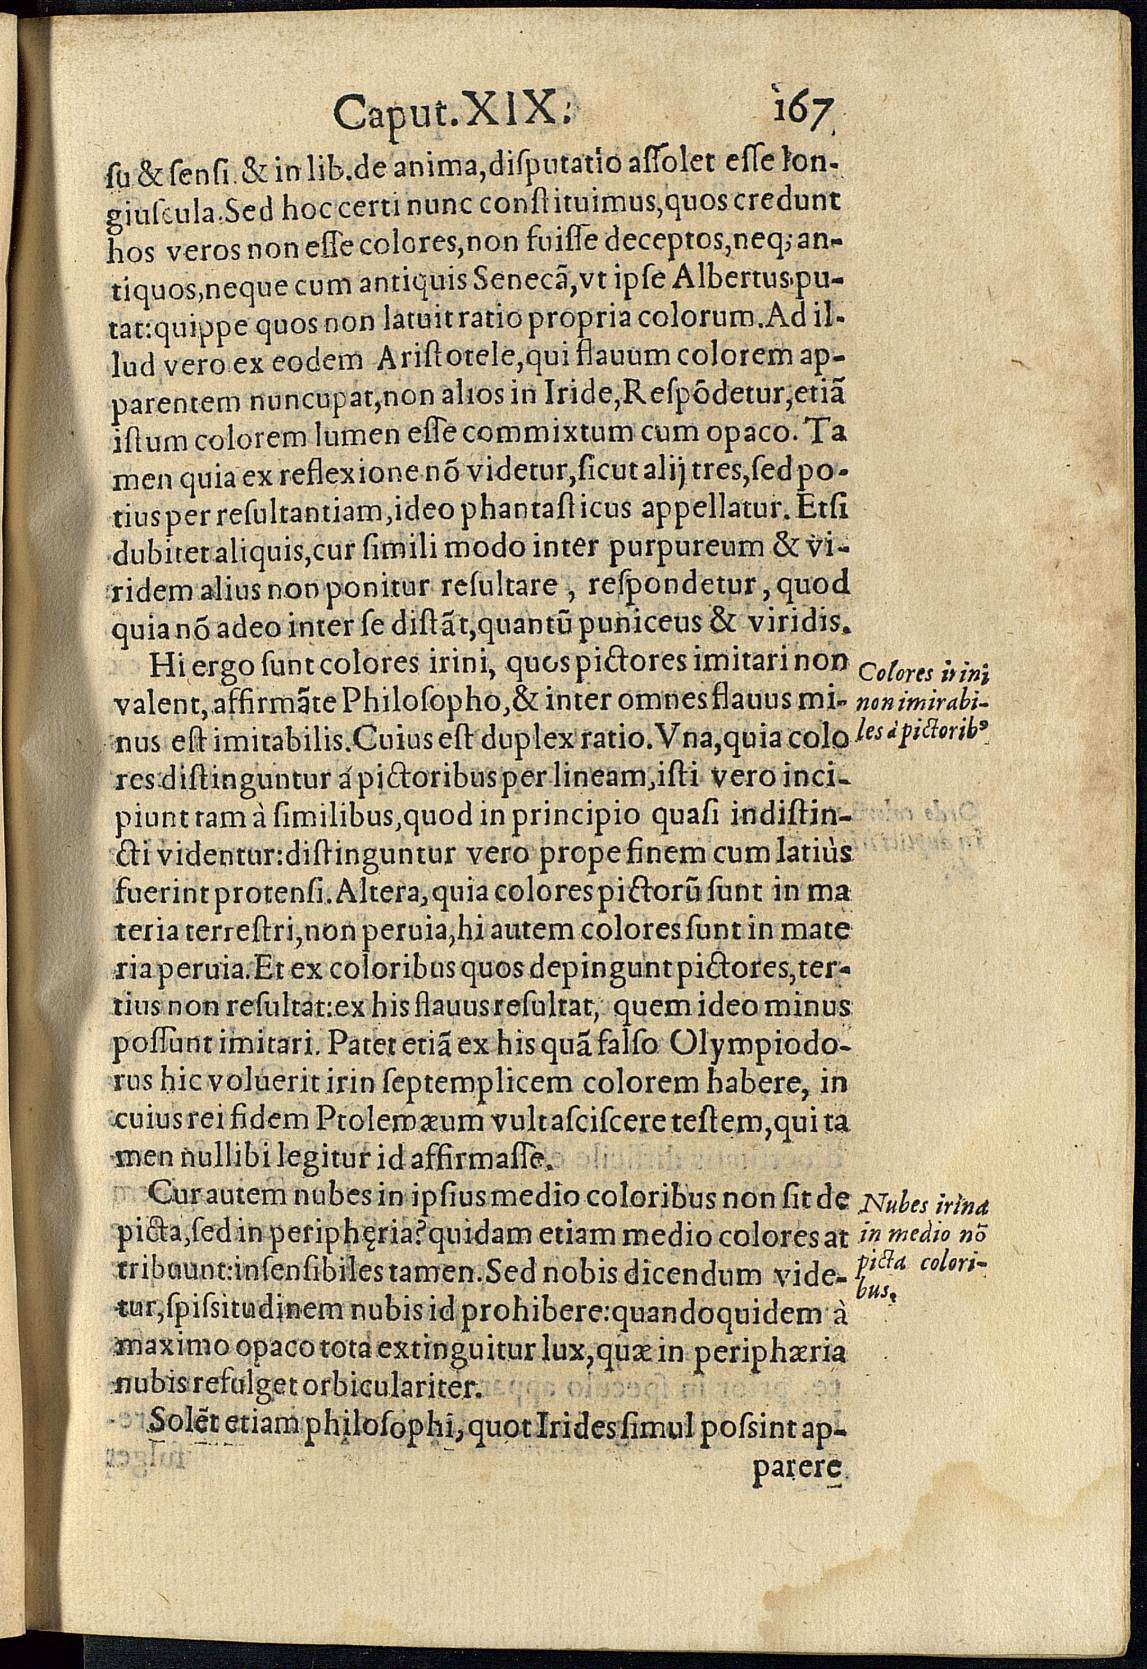 Caput. XIX. 167
su & sensi. & in lib. de anima, disputatio assolet esse lon-
giuscula. Sed hoc certi nunc constituimus, quos credunt
hos veros non esse colores, non fuisse deceptos, neq; an-
tiquos, neque cum antiquis Senecã, vt ipse Albertus pu-
tat: quippe quos non latuit ratio propria colorum. Ad il-
lud vero ex eodem Aristotele, qui flauum colorem ap-
parentem nuncupat, non alios in Iride, Respõdetur, etiã
istum colorem lumen esse commixtum cum opaco. Ta
men quia ex reflexione nõ videtur, sicut alij tres, sed po-
tius per resultantiam, ideo phantasticus appellatur. Etsi
dubitet aliquis, cur simili modo inter purpureum & vi-
ridem alius non ponitur resultare, respondetur, quod
quia nõ adeo inter se distãt, quantũ puniceus & viridis.
Hi ergo sunt colores irini, quos pictores imitari non
valent, affirmãte Philosopho, & inter omnes flauus mi-
nus est imitabilis. Cuius est duplex ratio. Vna, quia colo
res distinguntur á pictoribus per lineam, isti vero inci-
piunt tam à similibus, quod in principio quasi indistin-
cti videntur: distinguntur vero prope finem cum latiùs
fuerint protensi. Altera, quia colores pictorũ sunt in ma
teria terrestri, non peruia, hi autem colores sunt in mate
ria peruia. Et ex coloribus quos depingunt pictores, ter-
tius non resultat: ex his flauus resultat, quem ideo minus
possunt imitari. Patet etiã ex his quã falso Olympiodo-
rus hic voluerit irin septemplicem colorem habere, in
cuius rei fidem Ptolemæum vult asciscere testem, qui ta
men nullibi legitur id affirmasse.
Cur autem nubes in ipsius medio coloribus non sit de
picta, sed in periphęria? quidam etiam medio colores at
tribuunt: insensibiles tamen. Sed nobis dicendum vide-
tur, spissitudinem nubis id prohibere: quandoquidem à
maximo opaco tota extinguitur lux, quæ in periphæria
nubis refulget orbiculariter.
Solẽt etiam philosophi, quot Irides simul possint ap-
parere
Colores irini
non imitabi-
les à pictorib⁹
Nubes irina
in medio nõ
picta colori-
bus.